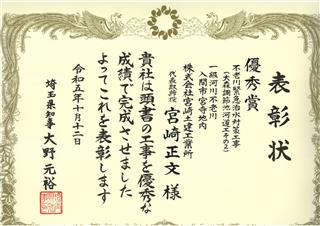 表彰状
優秀賞
不老川緊急治水対策工事
(大森調節池河道工その2)
一級河川不老川
入間市宮寺地内
株式会社宮崎土建工業所
代表取締役 宮崎正文様
貴社は頭書の工事を優秀な
成績で完成させました
よってこれを表彰します
令和五年十月十二日
埼玉県知事 大野元裕